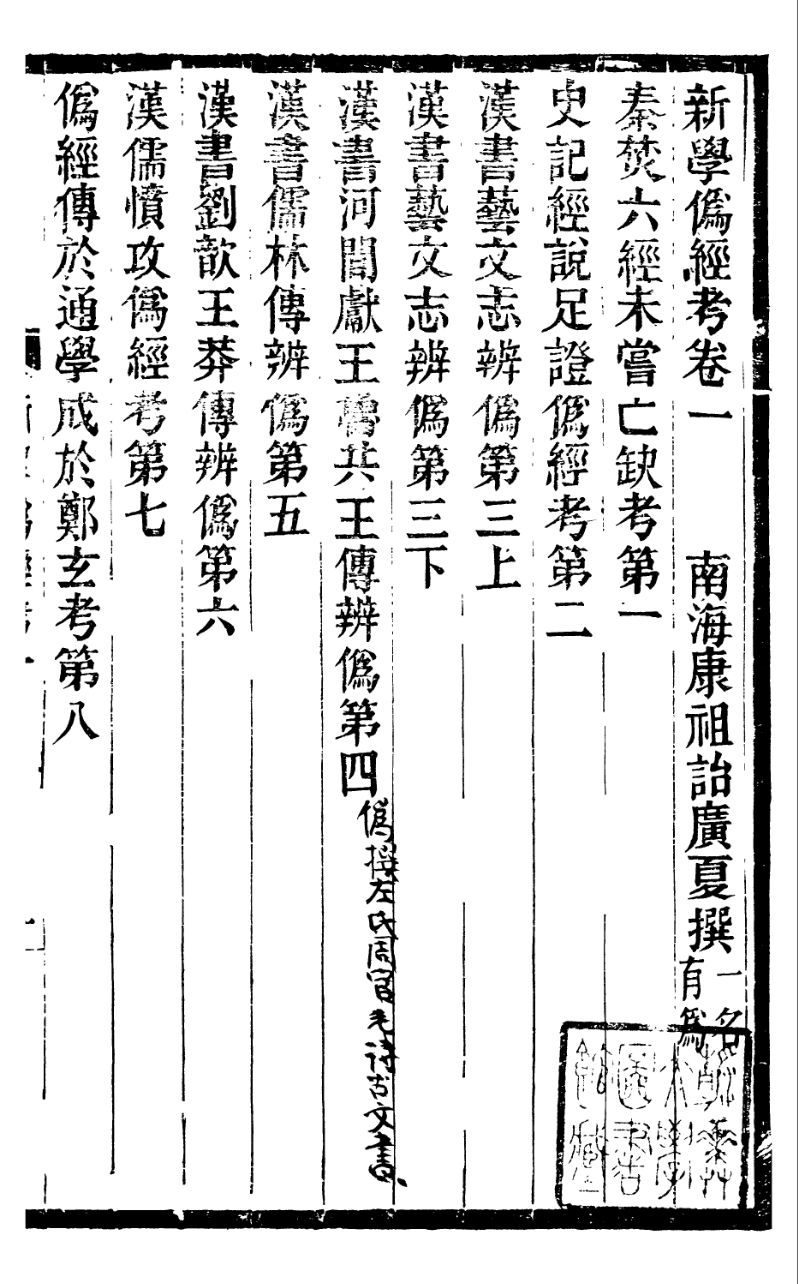 新學僞經考卷一　　南海康祖詒廣夏撰　一名有爲
秦焚六經未嘗亡缺考第一
史記經說足證僞經考第二
漢書藝文志辨僞第三上
漢書藝文志辨僞第三下
漢書河間獻王魯共王傳辨僞第四　僞撰左氏周官毛詩古文書、
漢書儒林傳辨僞第五
漢書劉歆王莽傳辨僞第六
漢儒憤攻僞經考第七
僞經傳於通學成於鄭玄考第八